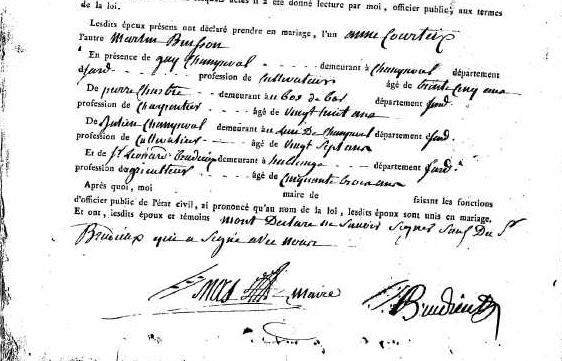 il a été donné lecture par moi, officier public, aux termes
de la loi.
Lesdits époux présens ont déclaré prendre en mariage, l'un anne Courteix
l'autre Martin Buisson
En présence de guy Champval demeurant à Champval département
dud. profession de Cultivateur âgé de trente cinq ans
De pierre demeurant au bos de bar département dud.
profession de Charpentier âgé de vingt huit ans
De Julien Champval demeurant au lieu De Champval département dud.
profession de Cultivateur âgé de vingt sept ans
Et de Sr Léonard demeurant à département dud.
profession d'agriculteur âgé de Cinquante trois ans
Après quoi, moi maire de faisant les fonctions
d'officier public de l'état civil, ai prononcé qu'au nom de la loi, lesdits époux sont unis en mariage.
Et ont, lesdits époux et témoins mont Déclaré ne Savoir Signer Sauf Du Sr
Brudieux qui a Signé avec nous
Mas Maire
Brudieux